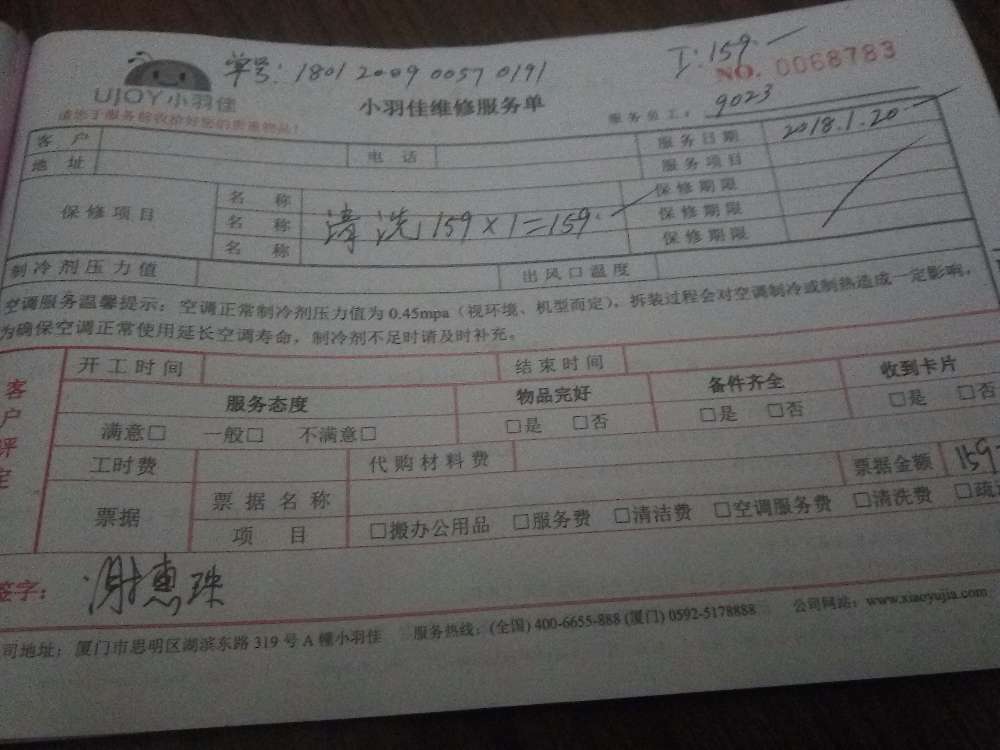 单号: 1801 2009 0057 0191
工:159.一
NO. 0068783
UJOY小羽佳
小羽佳维修服务单
服务员工: 9023
客户 电话 服务日期 2018.1.20
地址 服务项目
保修项目 名称 保修期限
名称 清洗 159×1=159. 保修期限
名称 保修期限
制冷剂压力值 出风口温度
空调服务温馨提示:空调正常制冷剂压力值为0.45mpa(视环境、机型而定),拆装过程会对空调制冷或制热造成一定影响,
为确保空调正常使用延长空调寿命,制冷剂不足时请及时补充。
客户评定
开工时间 结束时间
服务态度 物品完好 备件齐全 收到卡片
满意□ 一般□ 不满意□ □是 □否 □是 □否 □是 □否
工时费 代购材料费 票据金额 159
票据 票据名称
项目 □搬办公用品 □服务费 □清洁费 □空调服务费 □清洗费
签字: 谢惠珠
司地址:厦门市思明区湖滨东路319号A幢小羽佳 服务热线:(全国)400-6655-888(厦门)0592-5178888 公司网站:www.xiaoyujia.com